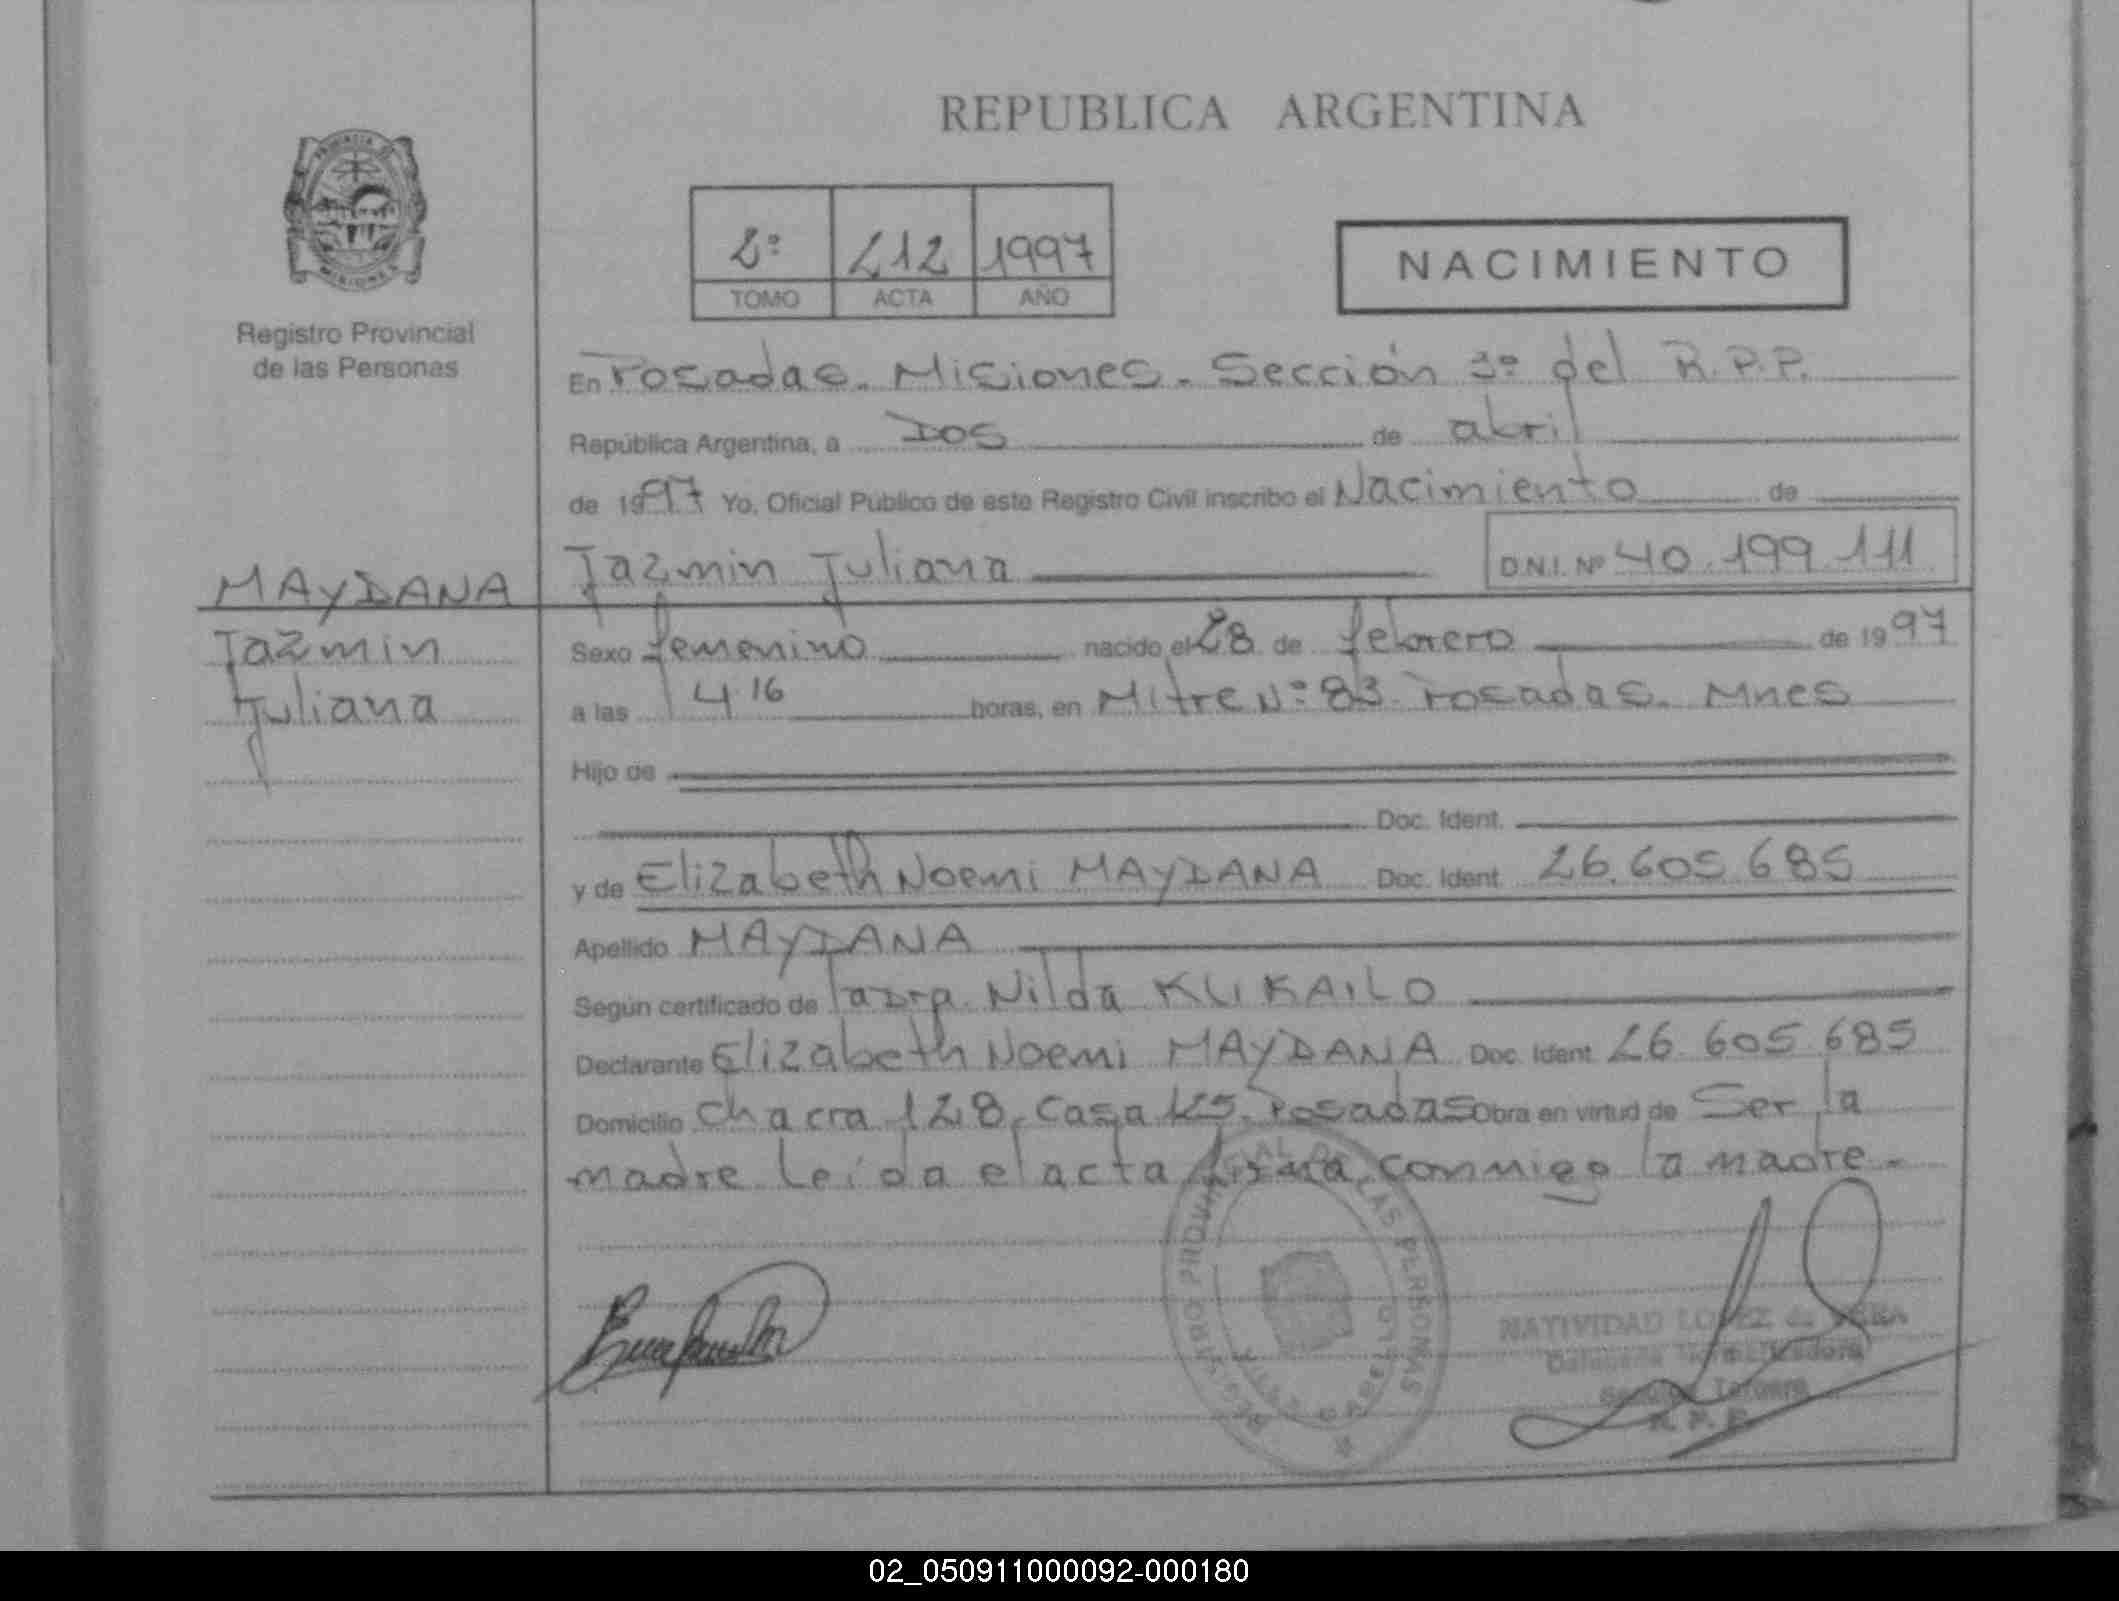 REPUBLICA ARGENTINA
PROVINCIA DE
MISIONES
Registro Provincial
de las Personas
2º 212 1997
TOMO ACTA AÑO
NACIMIENTO
En Posadas. Misiones. Sección 3º del R.P.P.
República Argentina, a Dos de abril
de 1997 Yo, Oficial Público de este Registro Civil inscribo el Nacimiento de
Jazmin Juliana D.N.I. Nº 40.199.111
MAYDANA
Jazmin
Juliana
Sexo femenino nacido el 28 de febrero de 1997
a las 4 16 horas, en Mitre Nº 83. Posadas. Mnes
Hijo de
Doc. Ident.
y de Elizabeth Noemi MAYDANA Doc. Ident. 26.605.685
Apellido MAYDANA
Según certificado de Nilda KUKAILO
Declarante Elizabeth Noemi MAYDANA Doc. Ident. 26.605.685
Domicilio Chacra 128. Casa 125. Posadas Obra en virtud de Ser la
madre Leída el acta firma conmigo la madre.
REGISTRO PROVINCIAL DE LAS PERSONAS
NATIVIDAD LOPEZ de
Delegada Titular
Sección Tercera
R.P.P.
02_050911000092-000180